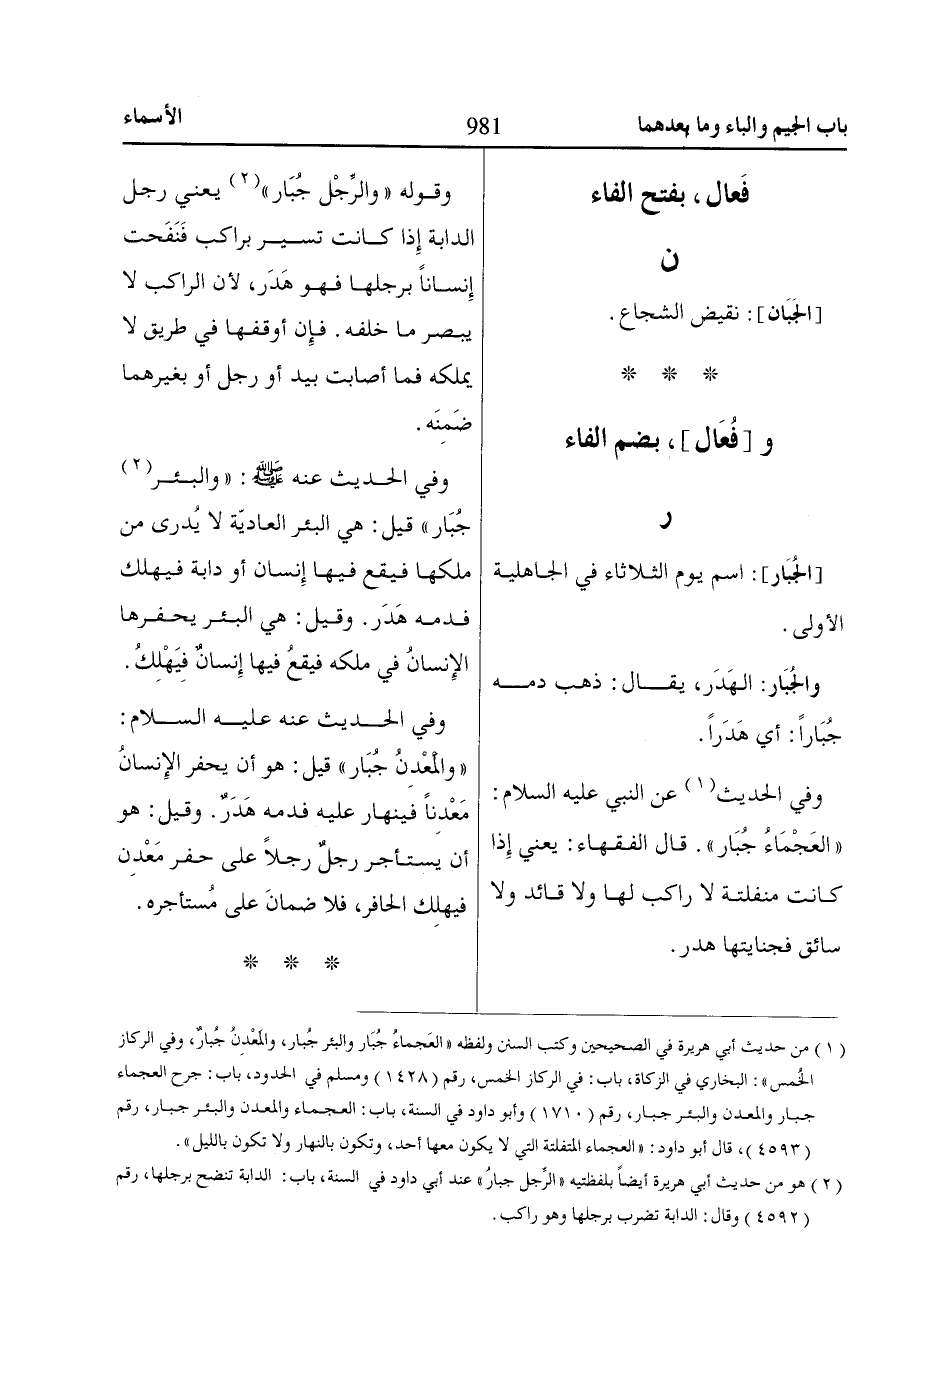 باب الجيم والباء وما بعدهما
981
الأسماء
فَعال، بفتح الفاء
ن
[الجَبَان]: نقيض الشجاع.
* * *
و [فُعَال]، بضم الفاء
ر
[الجُبَار]: اسم يوم الثلاثاء في الجاهلية
الأولى.
والجُبَار: الهَدَر، يقال: ذهب دمه
جُبَاراً: أي هَدَراً.
وفي الحديث(١) عن النبي عليه السلام:
«العَجْمَاءُ جُبَار». قال الفقهاء: يعني إذا
كانت منفلتة لا راكب لها ولا قائد ولا
سائق فجنايتها هدر.
وقوله «والرِّجْل جُبَار»(٢) يعني رجل
الدابة إذا كانت تسير براكب فَنَفَحت
إنساناً برجلها فهو هَدَر، لأن الراكب لا
يبصر ما خلفه. فإن أوقفها في طريق لا
يملكه فما أصابت بيد أو رجل أو بغيرهما
ضَمِنَه.
وفي الحديث عنه ﷺ: «والبئر(٢)
جُبَار» قيل: هي البئر العاديّة لا يُدرى من
ملكها فيقع فيها إنسان أو دابة فيهلك
فدمه هَدَر. وقيل: هي البئر يحفرها
الإنسانُ في ملكه فيقعُ فيها إنسانٌ فيَهْلِكُ.
وفي الحديث عنه عليه السلام:
«والمَعْدنُ جُبَار» قيل: هو أن يحفر الإنسانُ
مَعْدناً فينهار عليه فدمه هَدَرٌ. وقيل: هو
أن يستأجر رجلٌ رجلاً على حفر مَعْدن
فيهلِك الحافر، فلا ضمانَ على مُستأجره.
* * *
(١) من حديث أبي هريرة في الصحيحين وكتب السنن ولفظه «العَجماءُ جُبَار والبئر جُبار، والمَعْدِنُ جُبارٌ، وفي الركاز
الخُمس»: البخاري في الزكاة، باب: في الركاز الخمس، رقم (١٤٢٨) ومسلم في الحدود، باب: جرح العجماء
جبار والمعدن والبئر جبار، رقم (١٧١٠) وأبو داود في السنة، باب: العجماء والمعدن والبئر جبار، رقم
(٤٥٩٣)، قال أبو داود: «العجماء المتفلتة التي لا يكون معها أحد، وتكون بالنهار ولا تكون بالليل».
(٢) هو من حديث أبي هريرة أيضاً بلفظتيه «الرِّجل جبارُ» عند أبي داود في السنة، باب: الدابة تنضح برجلها، رقم
(٤٥٩٢) وقال: الدابة تضرب برجلها وهو راكب.